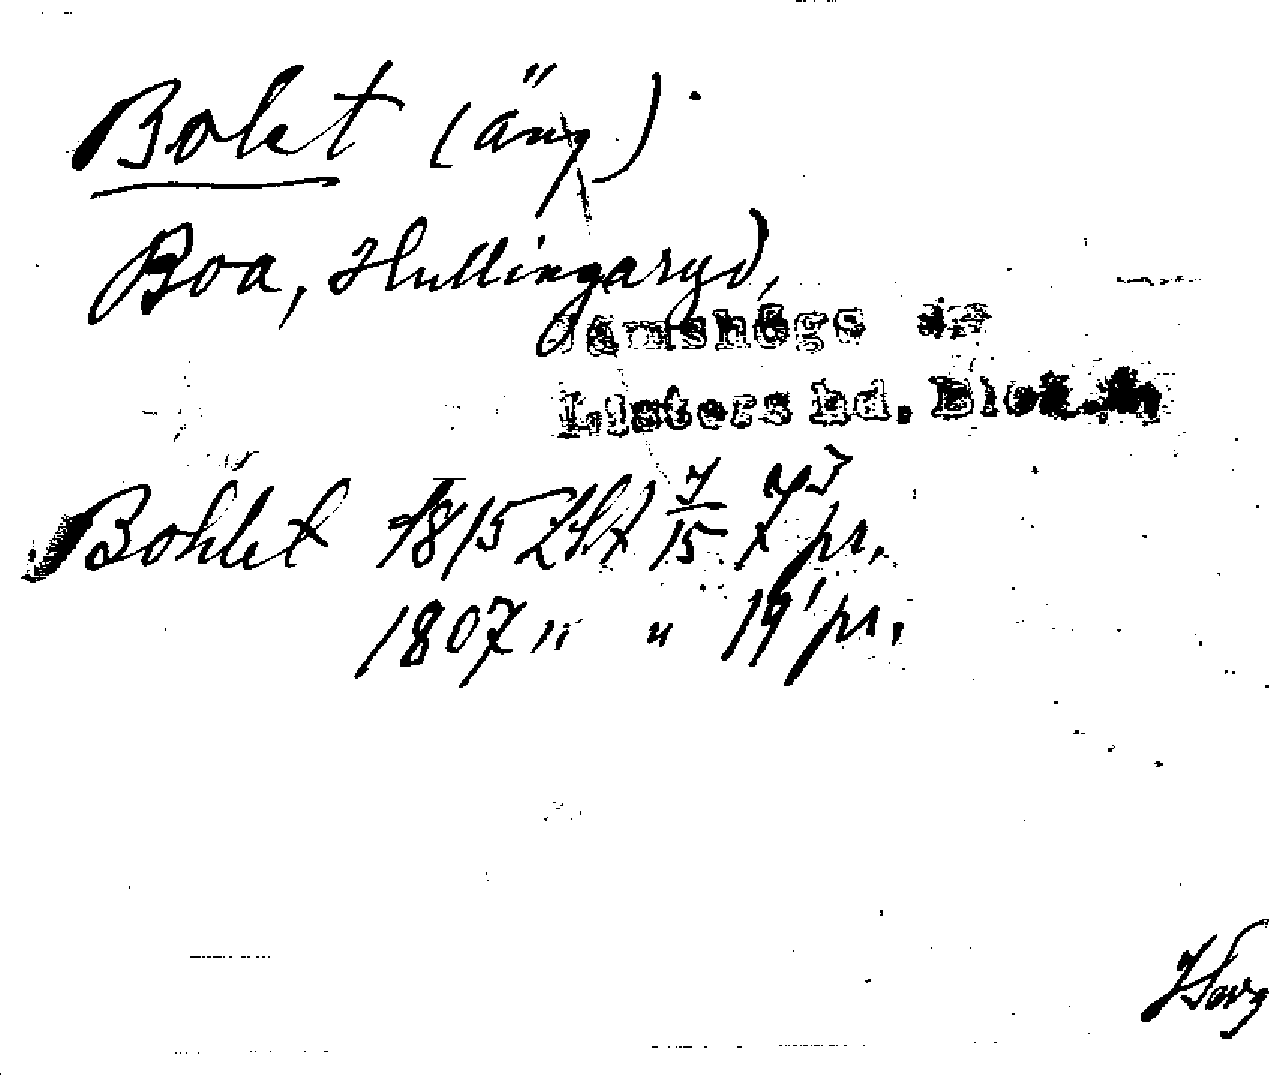 Bolet (äng).
Boa, Hullingaryd,
Jämshögs sn
Listers hd. Blek. l.
Bohlet 1815 LSA 7/15 7 pr.
1807 " " 19' pr.